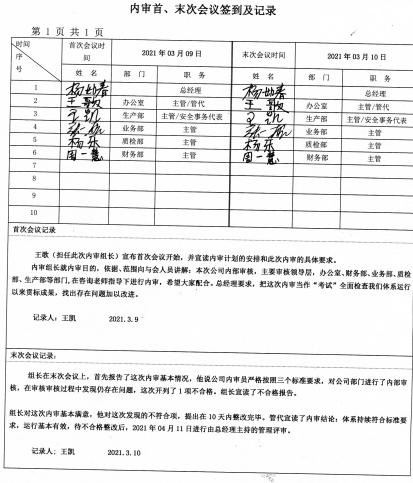 内审首、末次会议签到及记录
第 1 页 共 1 页
时间 首次会议时间 2021 年 03 月 09 日 末次会议时间 2021 年 03 月 10 日
序号 姓 名 部 门 职 务 姓 名 部 门 职 务
1 总经理 总经理
2 王歌 办公室 主管/管代 王歌 办公室 主管/管代
3 王凯 生产部 主管/安全事务代表 王凯 生产部 主管/安全事务代表
4 业务部 主管 业务部 主管
5 杨乐 质检部 主管 杨乐 质检部 主管
6 周一慧 财务部 主管 周一慧 财务部 主管
7
8
9
10
首次会议记录
王歌（担任此次内审组长）宣布首次会议开始，并宣读内审计划的安排和此次内审的具体要求。
内审组长就内审目的、依据、范围向与会人员讲解：本公司内部审核，主要审核领导层，办公室、财务部、业务部、质检
部、生产部等部门，在咨询老师指导下进行内审，希望大家配合。总经理要求，把这次内审当作“考试”全面检查我们体系运行
以来贯标成果，找出存在问题加以改进。
记录人：王凯 2021.3.9
末次会议记录：
组长在末次会议上，首先报告了这次内审基本情况，他说公司内审员严格按照三个标准要求，对公司部门进行了内部审
核，在审核审核过程中发现仍存在问题，这次开列了 1 项不合格。组长宣读了不合格报告。
组长对这次内审基本满意，他对这次发现的不符合项，提出在 10 天内整改完毕。管代宣读了内审结论：体系持续符合标准要
求，运行基本有效，待不合格整改后，2021 年 04 月 11 日进行由总经理主持的管理评审。
记录人：王凯 2021.3.10